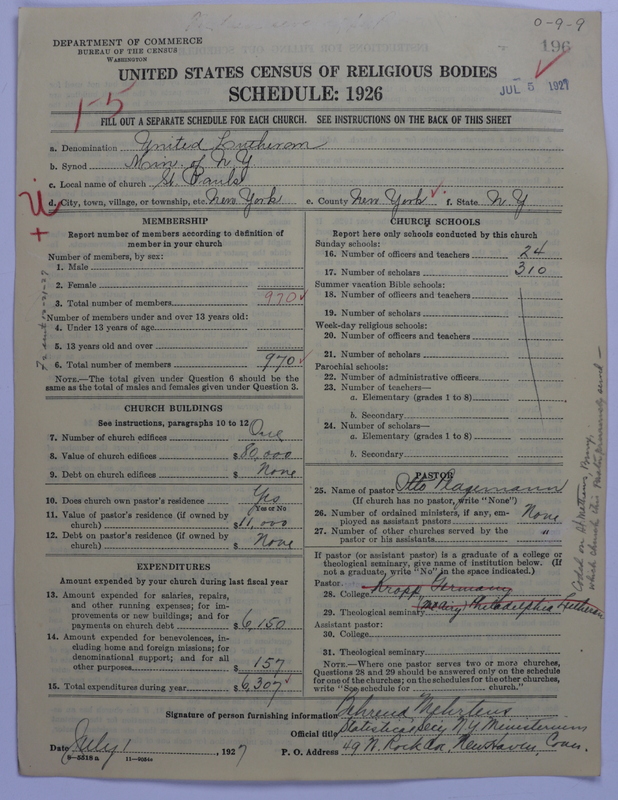 0-9-9
196
DEPARTMENT OF COMMERCE
BUREAU OF THE CENSUS
WASHINGTON
JUL 5 1927
UNITED STATES CENSUS OF RELIGIOUS BODIES
SCHEDULE: 1926
1-5
FILL OUT A SEPARATE SCHEDULE FOR EACH CHURCH. SEE INSTRUCTIONS ON THE BACK OF THIS SHEET
a. Denomination United Lutheran
b. Synod Mine. of N.Y.
c. Local name of church St. Pauls
d. City, town, village, or township, etc. New York e. County New York f. State N.Y
MEMBERSHIP
Report number of members according to definition of
member in your church
Number of members, by sex:
1. Male
2. Female
3. Total number of members 970
Number of members under and over 13 years old:
4. Under 13 years of age
5. 13 years old and over
6. Total number of members 970
NOTE.—The total given under Question 6 should be the
same as the total of males and females given under Question 3.
CHURCH BUILDINGS
See instructions, paragraphs 10 to 12
7. Number of church edifices One
8. Value of church edifices $80,000
9. Debt on church edifices $ None
10. Does church own pastor's residence Yes
Yes or No
11. Value of pastor's residence (if owned by
church) $11,000
12. Debt on pastor's residence (if owned by
church) $ None
EXPENDITURES
Amount expended by your church during last fiscal year
13. Amount expended for salaries, repairs,
and other running expenses; for im-
provements or new buildings; and for
payments on church debt $6,150
14. Amount expended for benevolences, in-
cluding home and foreign missions; for
denominational support; and for all
other purposes $ 157
15. Total expenditures during year $6,307
CHURCH SCHOOLS
Report here only schools conducted by this church
Sunday schools:
16. Number of officers and teachers 24
17. Number of scholars 310
Summer vacation Bible schools:
18. Number of officers and teachers
19. Number of scholars
Week-day religious schools:
20. Number of officers and teachers
21. Number of scholars
Parochial schools:
22. Number of administrative officers
23. Number of teachers—
a. Elementary (grades 1 to 8)
b. Secondary
24. Number of scholars—
a. Elementary (grades 1 to 8)
b. Secondary
PASTOR
25. Name of pastor Otto Hagemann
(If church has no pastor, write "None")
26. Number of ordained ministers, if any, em-
ployed as assistant pastors None
27. Number of other churches served by the
pastor or his assistants "
If pastor (or assistant pastor) is a graduate of a college or
theological seminary, give name of institution below. (If
not a graduate, write "No" in the space indicated.)
Pastor:
28. College Kropp Germany
29. Theological seminary Philadelphia Lutheran
Assistant pastor:
30. College
31. Theological seminary
NOTE.—Where one pastor serves two or more churches,
Questions 28 and 29 should be answered only on the schedule
for one of the churches; on the schedules for the other churches,
write "See schedule for church."
Signature of person furnishing information Behrend Mehrtens
Official title Statistical Secy N.Y. Ministerium
Date July 1, 1927 P. O. Address 49 N. Rock Ave, New Haven, Conn.
9-5518a 11-9034c